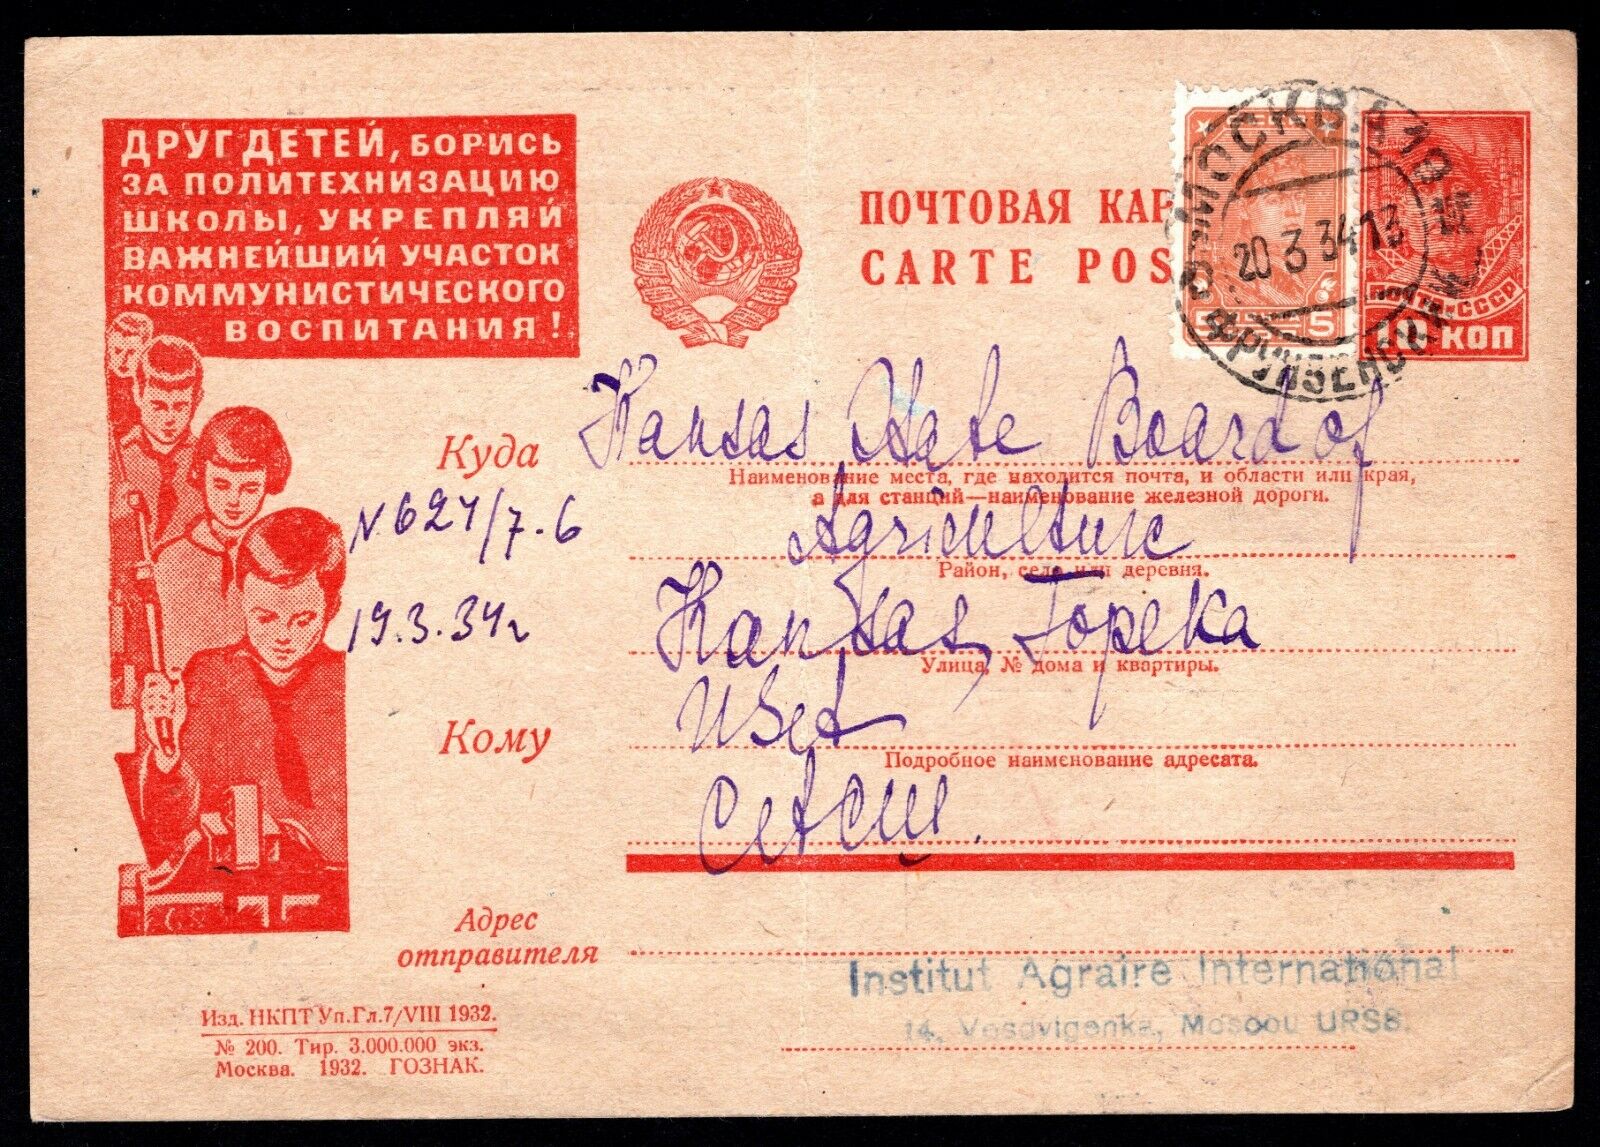 ДРУГ ДЕТЕЙ, БОРИСЬ
ЗА ПОЛИТЕХНИЗАЦИЮ
ШКОЛЫ, УКРЕПЛЯЙ
ВАЖНЕЙШИЙ УЧАСТОК
КОММУНИСТИЧЕСКОГО
ВОСПИТАНИЯ!
ПОЧТОВАЯ КАР
CARTE POS
МОСКВА
20 3 34 13
ФРУНЗЕНСКИЙ
5 5
СССР
10 КОП
Куда
Kansas State Board of
Наименование места, где находится почта, и области или края,
а для станций—наименование железной дороги.
N 624/7-6
Agriculture
Район, село или деревня.
19.3.34г
Kansas, Topeka
Улица, № дома и квартиры.
Кому
Подробное наименование адресата.
США.
Адрес
отправителя
Institut Agraire International
14, Vosdvigenka, Moscou URSS.
Изд. НКПТ Уп.Гл.7/VIII 1932.
№ 200. Тир. 3.000.000 экз.
Москва. 1932. ГОЗНАК.